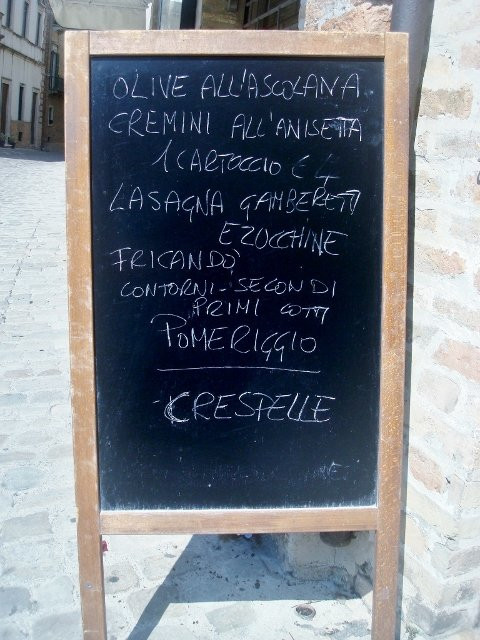 OLIVE ALL'ASCOLANA
CREMINI ALL'ANISETTA
1 CARTOCCIO € 4
LASAGNA GAMBERETTI
E ZUCCHINE
FRICANDÒ
CONTORNI - SECONDI
PRIMI COTTI
POMERIGGIO
CRESPELLE